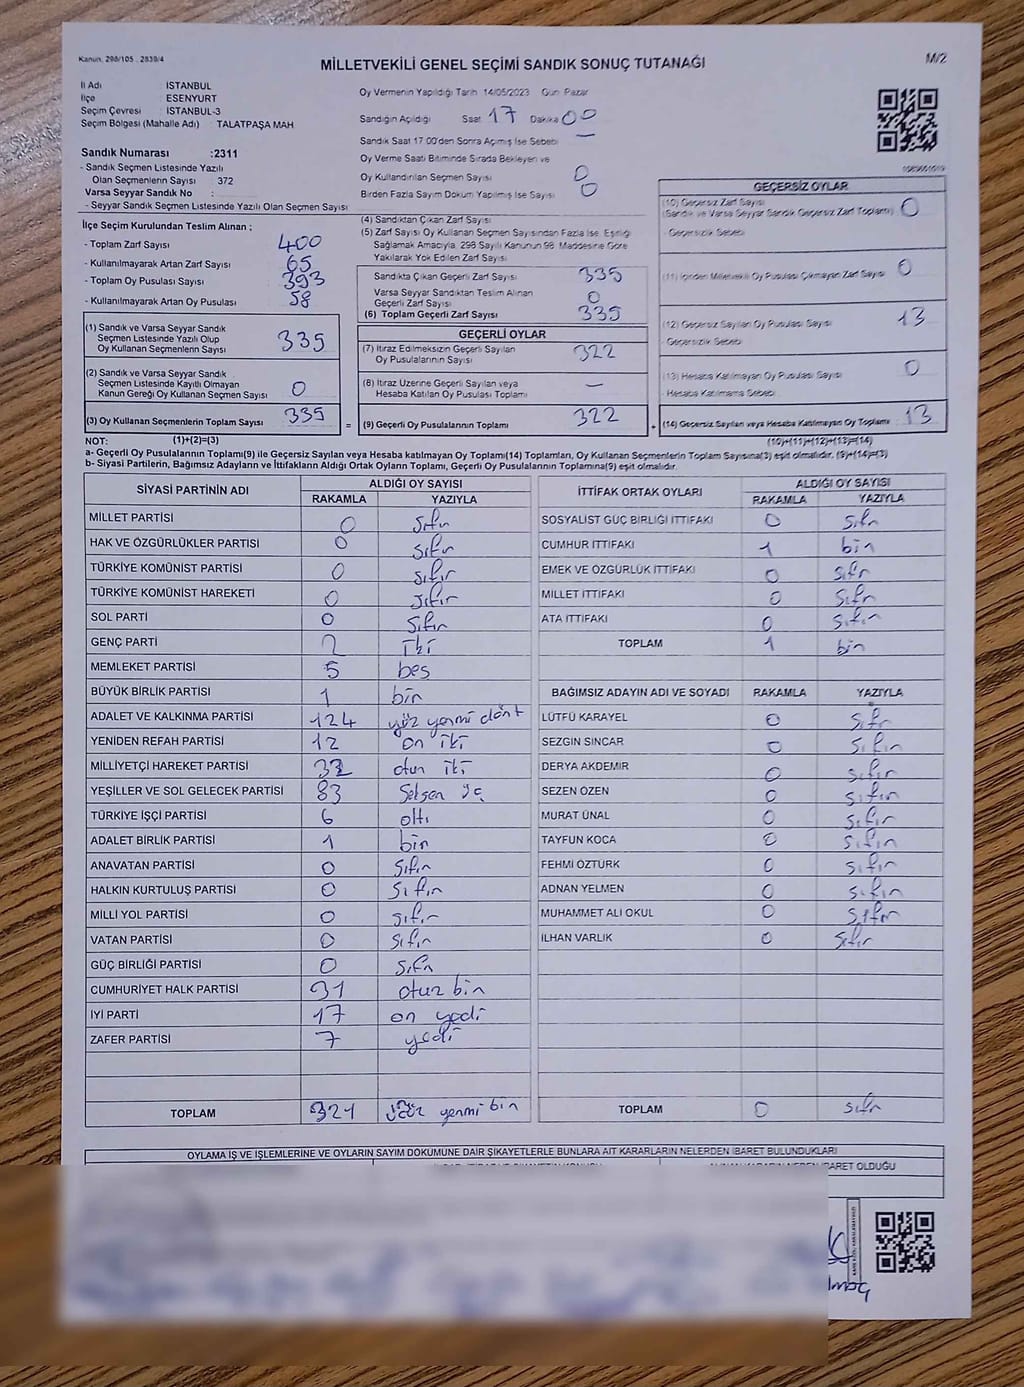 Kanun, 298/105 , 2839/4
MİLLETVEKİLİ GENEL SEÇİMİ SANDIK SONUÇ TUTANAĞI
M/2
İl Adı : İSTANBUL
İlçe : ESENYURT
Seçim Çevresi : İSTANBUL-3
Seçim Bölgesi (Mahalle Adı) : TALATPAŞA MAH
Sandık Numarası :2311
- Sandık Seçmen Listesinde Yazılı
Olan Seçmenlerin Sayısı : 372
Varsa Seyyar Sandık No :
- Seyyar Sandık Seçmen Listesinde Yazılı Olan Seçmen Sayısı
Oy Vermenin Yapıldığı Tarih 14/05/2023 Gün Pazar
Sandığın Açıldığı Saat 17 Dakika 00
Sandık Saat 17 00'den Sonra Açımış İse Sebebi —
Oy Verme Saati Bitiminde Sırada Bekleyen ve
Oy Kullandırılan Seçmen Sayısı 0
Birden Fazla Sayım Döküm Yapılmış İse Sayısı 0
İlçe Seçim Kurulundan Teslim Alınan ;
- Toplam Zarf Sayısı 400
- Kullanılmayarak Artan Zarf Sayısı 65
- Toplam Oy Pusulası Sayısı 393
- Kullanılmayarak Artan Oy Pusulası 58
(1) Sandık ve Varsa Seyyar Sandık
Seçmen Listesinde Yazılı Olup
Oy Kullanan Seçmenlerin Sayısı 335
(2) Sandık ve Varsa Seyyar Sandık
Seçmen Listesinde Kayıtlı Olmayan
Kanun Gereği Oy Kullanan Seçmen Sayısı 0
(3) Oy Kullanan Seçmenlerin Toplam Sayısı 335
(4) Sandıktan Çıkan Zarf Sayısı
(5) Zarf Sayısı Oy Kullanan Seçmen Sayısından Fazla İse, Eşitliği
Sağlamak Amacıyla, 298 Sayılı Kanunun 98. Maddesine Göre
Yakılarak Yok Edilen Zarf Sayısı
Sandıkta Çıkan Geçerli Zarf Sayısı 335
Varsa Seyyar Sandıktan Teslim Alınan
Geçerli Zarf Sayısı 0
(6) Toplam Geçerli Zarf Sayısı 335
GEÇERLİ OYLAR
(7) İtiraz Edilmeksizin Geçerli Sayılan
Oy Pusulalarının Sayısı 322
(8) İtiraz Üzerine Geçerli Sayılan veya
Hesaba Katılan Oy Pusulası Toplamı —
= (9) Geçerli Oy Pusulalarının Toplamı 322
1083601019
GEÇERSİZ OYLAR
(10) Geçersiz Zarf Sayısı
(Sandık ve Varsa Seyyar Sandık Geçersiz Zarf Toplamı) 0
- Geçersizlik Sebebi
(11) İçinden Milletvekili Oy Pusulası Çıkmayan Zarf Sayısı 0
(12) Geçersiz Sayılan Oy Pusulası Sayısı 13
- Geçersizlik Sebebi
(13) Hesaba Katılmayan Oy Pusulası Sayısı 0
- Hesaba Katılmama Sebebi
+ (14) Geçersiz Sayılan veya Hesaba Katılmayan Oy Toplamı 13
NOT: (1)+(2)=(3) (10)+(11)+(12)+(13)=(14)
a- Geçerli Oy Pusulalarının Toplamı(9) ile Geçersiz Sayılan veya Hesaba katılmayan Oy Toplamı(14) Toplamları, Oy Kullanan Seçmenlerin Toplam Sayısına(3) eşit olmalıdır. (9)+(14)=(3)
b- Siyasi Partilerin, Bağımsız Adayların ve İttifakların Aldığı Ortak Oyların Toplamı, Geçerli Oy Pusulalarının Toplamına(9) eşit olmalıdır.
SİYASİ PARTİNİN ADI ALDIĞI OY SAYISI
RAKAMLA YAZIYLA
MİLLET PARTİSİ 0 sıfır
HAK VE ÖZGÜRLÜKLER PARTİSİ 0 sıfır
TÜRKİYE KOMÜNİST PARTİSİ 0 sıfır
TÜRKİYE KOMÜNİST HAREKETİ 0 sıfır
SOL PARTİ 0 sıfır
GENÇ PARTİ 2 iki
MEMLEKET PARTİSİ 5 beş
BÜYÜK BİRLİK PARTİSİ 1 bir
ADALET VE KALKINMA PARTİSİ 124 yüz yirmi dört
YENİDEN REFAH PARTİSİ 12 on iki
MİLLİYETÇİ HAREKET PARTİSİ 32 otuz iki
YEŞİLLER VE SOL GELECEK PARTİSİ 83 Seksen üç
TÜRKİYE İŞÇİ PARTİSİ 6 altı
ADALET BİRLİK PARTİSİ 1 bir
ANAVATAN PARTİSİ 0 sıfır
HALKIN KURTULUŞ PARTİSİ 0 sıfır
MİLLİ YOL PARTİSİ 0 sıfır
VATAN PARTİSİ 0 sıfır
GÜÇ BİRLİĞİ PARTİSİ 0 sıfır
CUMHURİYET HALK PARTİSİ 31 otuz bir
İYİ PARTİ 17 on yedi
ZAFER PARTİSİ 7 yedi
TOPLAM 321 üçyüz yirmi bir
İTTİFAK ORTAK OYLARI ALDIĞI OY SAYISI
RAKAMLA YAZIYLA
SOSYALİST GÜÇ BİRLİĞİ İTTİFAKI 0 sıfır
CUMHUR İTTİFAKI 1 bir
EMEK VE ÖZGÜRLÜK İTTİFAKI 0 sıfır
MİLLET İTTİFAKI 0 sıfır
ATA İTTİFAKI 0 sıfır
TOPLAM 1 bir
BAĞIMSIZ ADAYIN ADI VE SOYADI RAKAMLA YAZIYLA
LÜTFÜ KARAYEL 0 sıfır
SEZGİN SİNCAR 0 sıfır
DERYA AKDEMİR 0 sıfır
SEZEN ÖZEN 0 sıfır
MURAT ÜNAL 0 sıfır
TAYFUN KOCA 0 sıfır
FEHMİ ÖZTÜRK 0 sıfır
ADNAN YELMEN 0 sıfır
MUHAMMET ALİ OKUL 0 sıfır
İLHAN VARLIK 0 sıfır
TOPLAM 0 sıfır
OYLAMA İŞ VE İŞLEMLERİNE VE OYLARIN SAYIM DÖKÜMÜNE DAİR ŞİKAYETLERLE BUNLARA AİT KARARLARIN NELERDEN İBARET BULUNDUKLARI
İBARET OLDUĞU